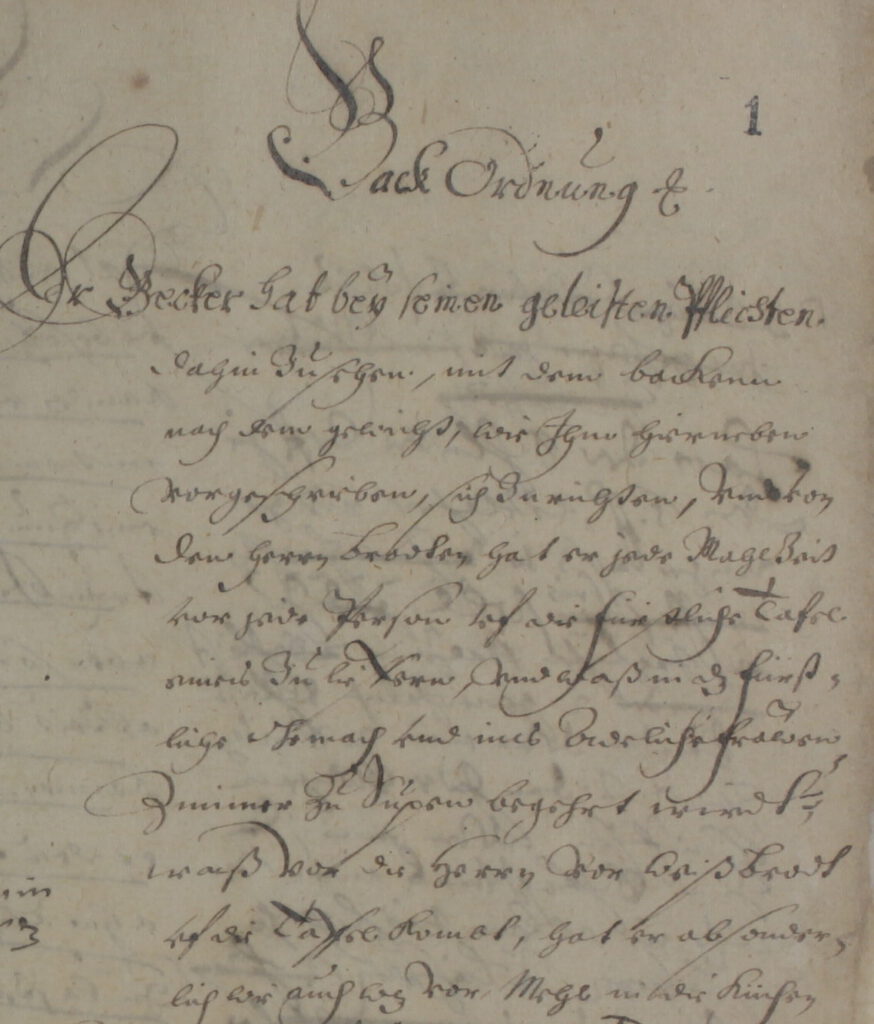 1
Back Ordnung
Er Becker hat beÿ seinen geleisten Pflichten
dahin Zusehen, mit dem backenn
nach dem gewicht, wie Ihm hierneben
vorgeschrieben, sich Zurichten, Vnd von
den Herrn brodten hat er jede MahlZeit
vor jede Person vf die fürstliche Tafel
eines Zu liefern, Vnd waß in dz fürst-
liche Gemach vnd ins Adeliche frawen
Zimmer Zu Supen begehrt wird
waß vor die Herrn Vor weißbrodt
vf die Taffel komet, hat er absonder-
lich wie auch wz vor Mehl in die Küchen